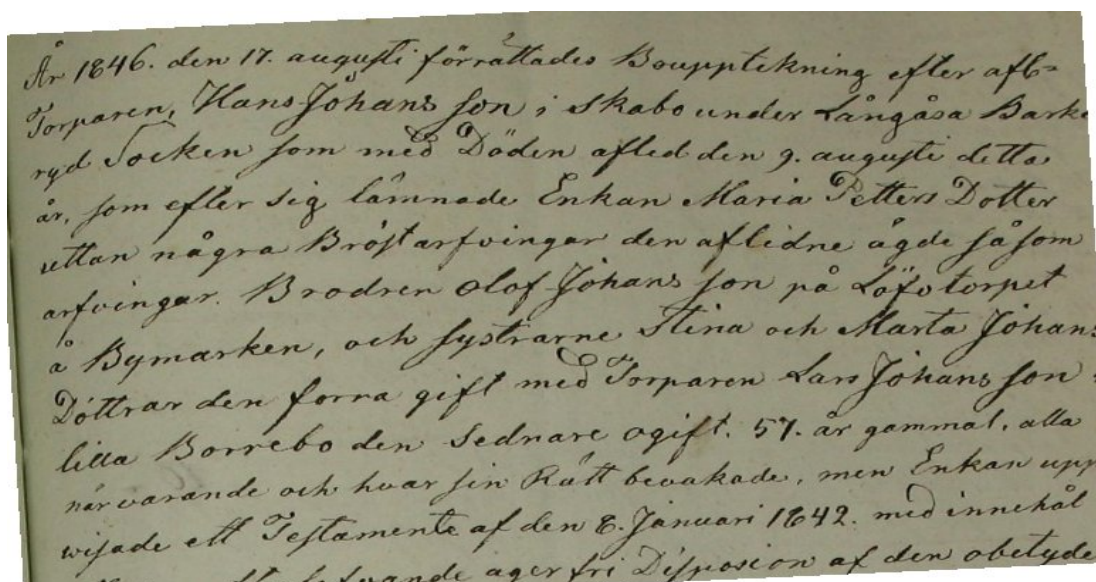 År 1846. den 17. augusti förrättades Bouppteckning efter afl=
Torparen, Hans Johans son i Skabo under Långåsa Barke
ryd Socken som med Döden afled den 9. augusti detta
år, som efter sig lämnade Enkan Maria Petters Dotter
uttan några Bröstarfvingar den aflidne ägde såsom
arfvingar. Brodren Olof Johans son på Löfstorpet
å Bymarken, och systrarne Stina och Marta Johans
Döttrar den förra gift med Torparen Lars Johans son
lilla Borrebo den Sednare ogift. 57. år gammal, alla
närvarande och hvar sin Rätt bevakade, men Enkan upp
wisade ett Testamente af den 8. Januari 1842. med innehål
äger fri Disposion af den obetyde